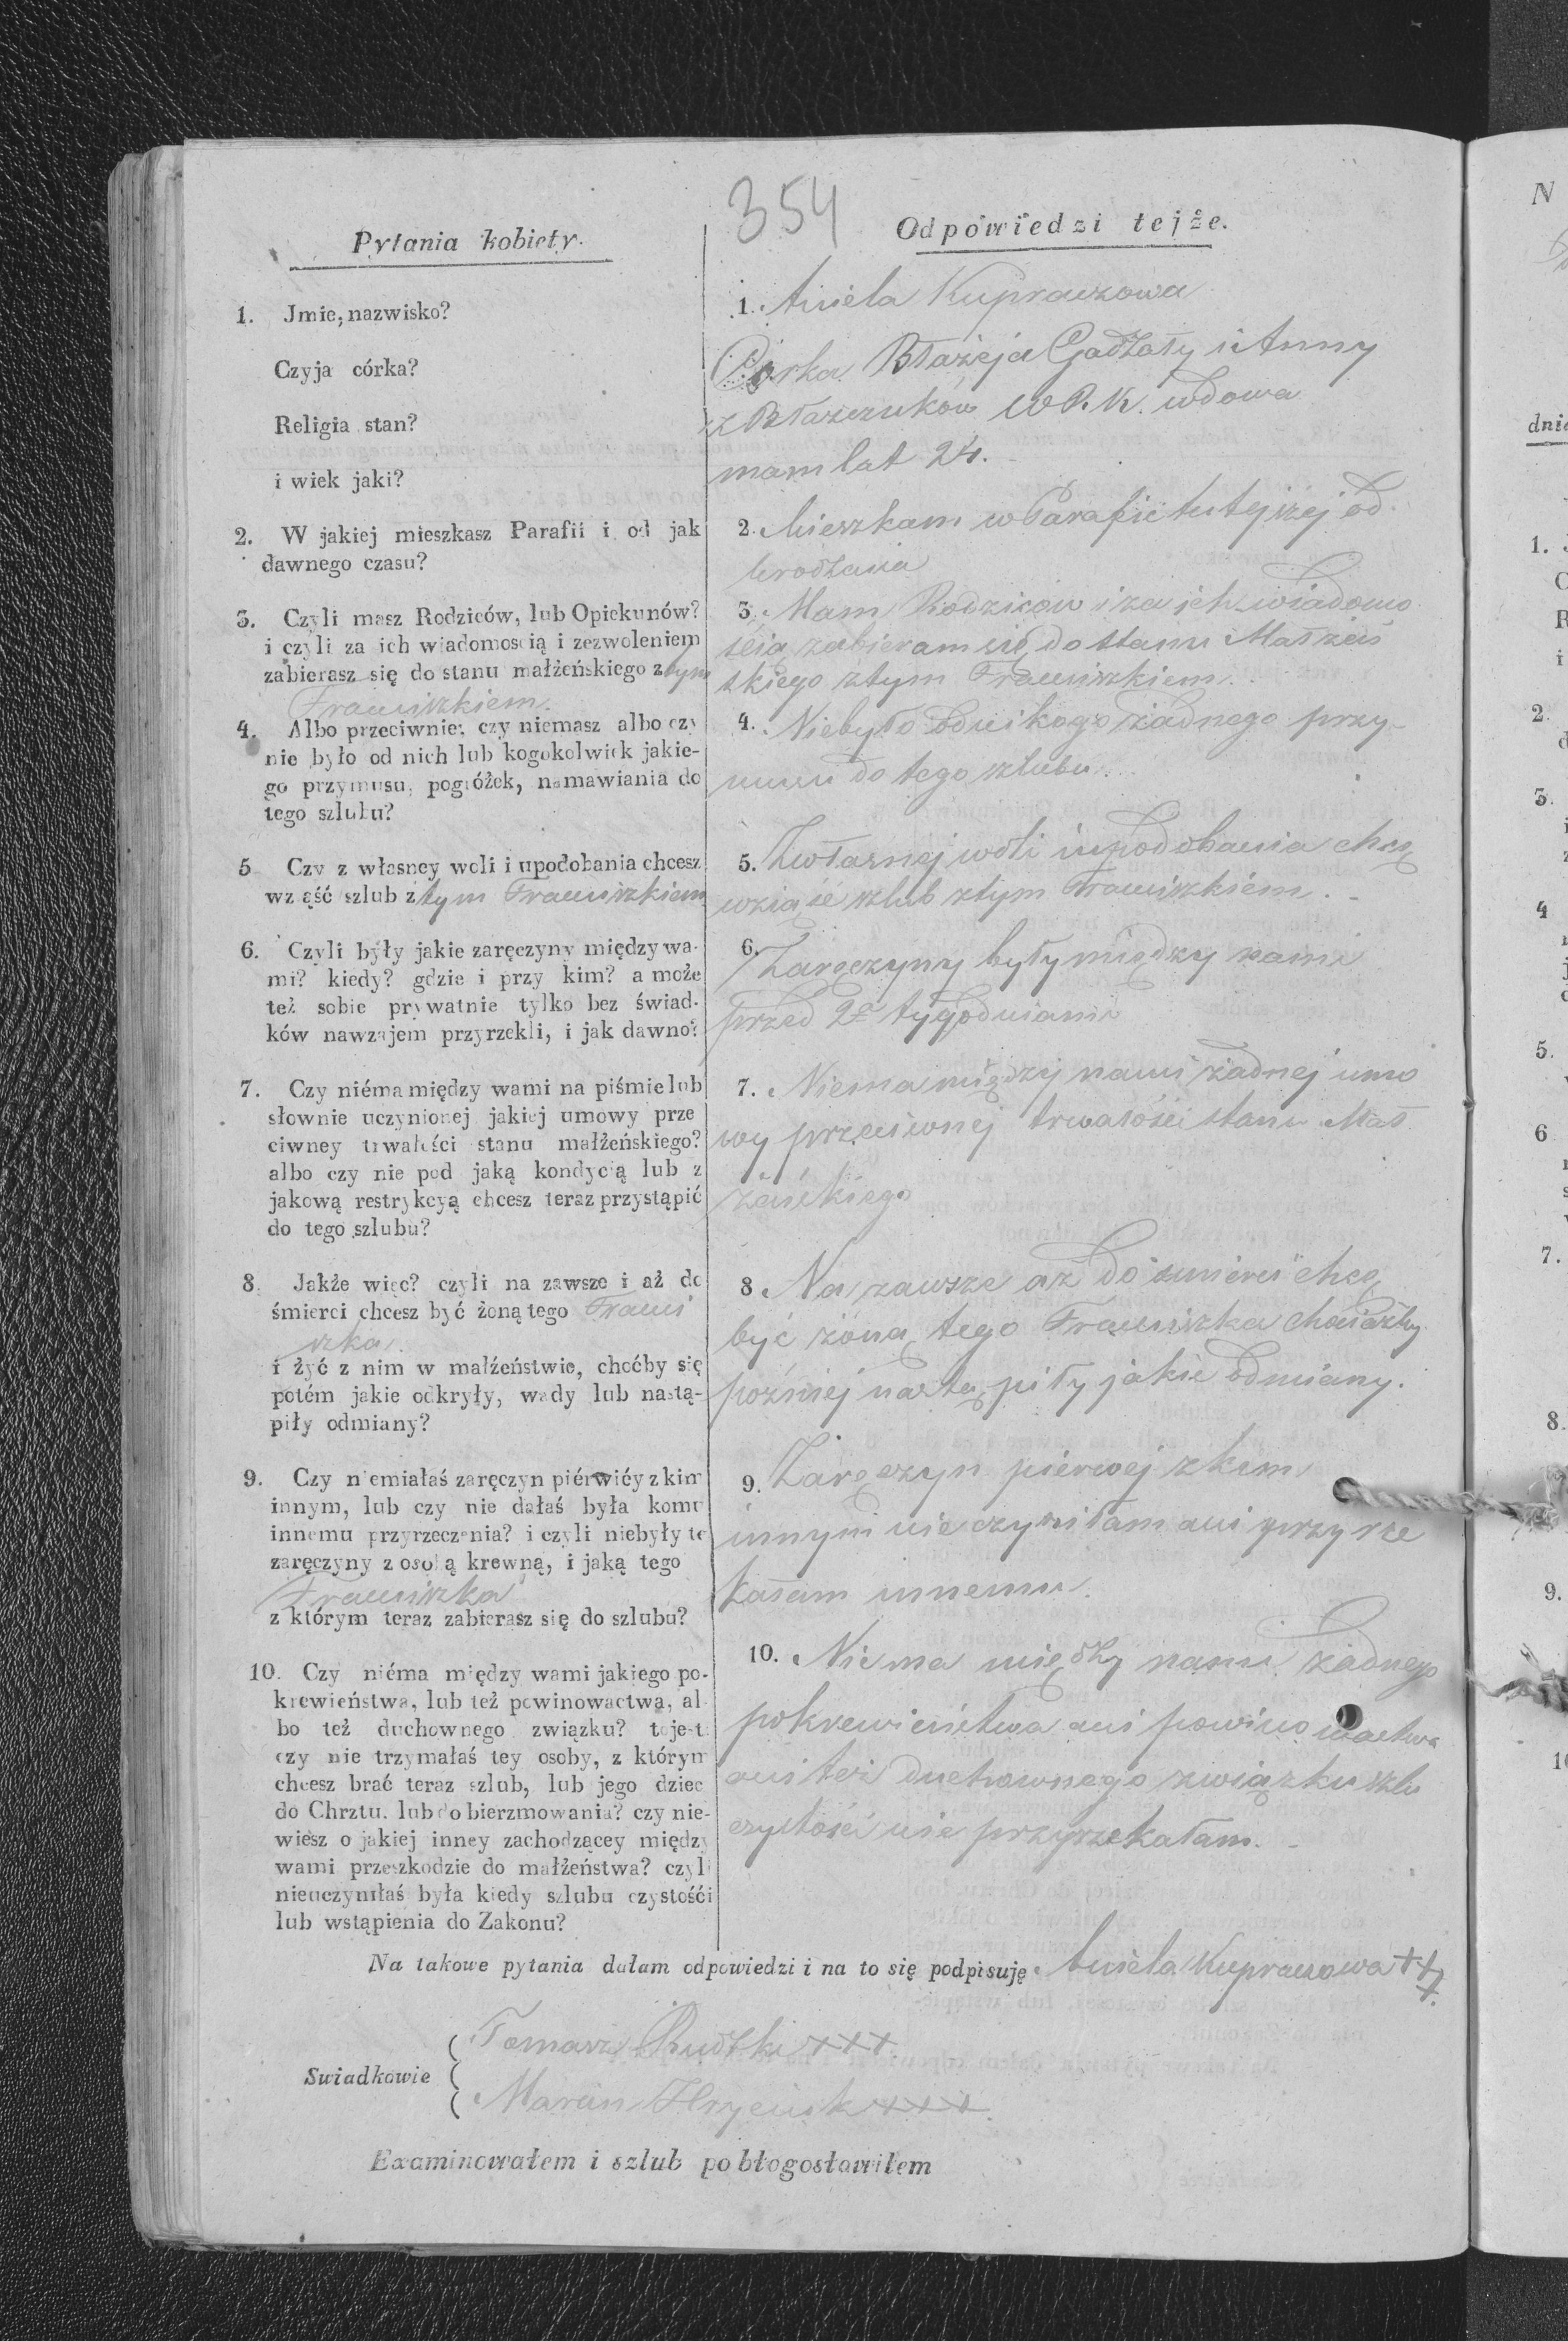 354
Pytania kobiety.
Odpowiedzi tejże.
1. Jmie, nazwisko?
Czyja córka?
Religia stan?
i wiek jaki?
1. Aniela Kupraczowa
Córka Błażeja Gadzały i Anny
z Błaszczuków W R. K. wdowa
mam lat 24.
2. W jakiej mieszkasz Parafii i od jak
dawnego czasu?
2. Mieszkam w Parafii tutejszej od
Urodzenia
3. Czyli masz Rodziców, lub Opiekunów?
i czyli za ich wiadomoscią i zezwoleniem
zabierasz się do stanu małżeńskiego z tym
Franciszkiem.
3. Mam Rodziców i za ich wiadomo
ścią zabieram się do stanu Małżeń
skiego z tym Franciszkiem.
4. Albo przeciwnie: czy niemasz albo czy
nie było od nich lub kogokolwiek jakie-
go przymusu, pogróżek, namawiania do
tego szlubu?
4. Niebyło od nikogo żadnego przy-
musu do tego szlubu.
5 Czy z własney woli i upodobania chcesz
wziąść szlub z tym Franciszkiem
5. Z własnej woli i upodobania chcę
wziąść szlub z tym Franciszkiem.
6. Czyli były jakie zaręczyny między wa-
mi? kiedy? gdzie i przy kim? a może
też sobie prywatnie tylko bez świad-
ków nawzajem przyrzekli, i jak dawno?
6. Zaręczyny były między nami
przed 2a tygodniami
7. Czy niéma między wami na piśmie lub
słownie uczynionej jakiej umowy prze
ciwney trwałości stanu małżeńskiego?
albo czy nie pod jaką kondycią lub z
jakową restrykcyą chcesz teraz przystąpić
do tego szlubu?
7. Niema między nami żadnej umo
wy przeciwnej trwałości stanu Mał
żeńskiego
8. Jakże więc? czyli na zawsze i aż do
śmierci chcesz być żoną tego Franci
szka
i żyć z nim w małżeństwie, choćby się
potém jakie odkryły, wady lub nastą-
piły odmiany?
8. Na zawsze aż do śmierci chcę
być żoną tego Franciszka chociażby
poźniej nastąpiły jakie odmiany.
9. Czy niemiałaś zaręczyn piérwićy z kim
innym, lub czy nie dałaś była komu
innemu przyrzeczenia? i czyli niebyły te
zaręczyny z osobą krewną, i jaką tego
Franciszka
z którym teraz zabierasz się do szlubu?
9. Zaręczyn pierwej z kim
innym nie czyniłam ani przyrze
kałam innemu.
10. Czy niéma między wami jakiego po-
krewieństwa, lub też powinowactwa, al-
bo też duchownego związku? to jest:
czy nie trzymałaś tey osoby, z którym
chcesz brać teraz szlub, lub jego dziec
do Chrztu. lub do bierzmowania? czy nie-
wiesz o jakiej inney zachodzącey między
wami przeszkodzie do małżeństwa? czyli
nieuczyniłaś była kiedy szlubu czystośći
lub wstąpienia do Zakonu?
10. Niema między nami żadnego
pokrewieństwa ani powinowactwa
ani też duchownego związku szlu
czystości nie przyrzekałam.
Na takowe pytania dałam odpowiedzi i na to się podpisuję. Aniela Kupraczowa +++
Swiadkowie
Tomasz Rudzki +++
Marcin Hryciuk +++
Examinowałem i szlub pobłogosławiłem
N
dnia
1.
2.
3.
4
5.
6
7.
8.
9.